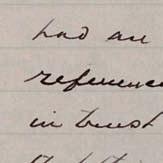 had an
reference
in trust